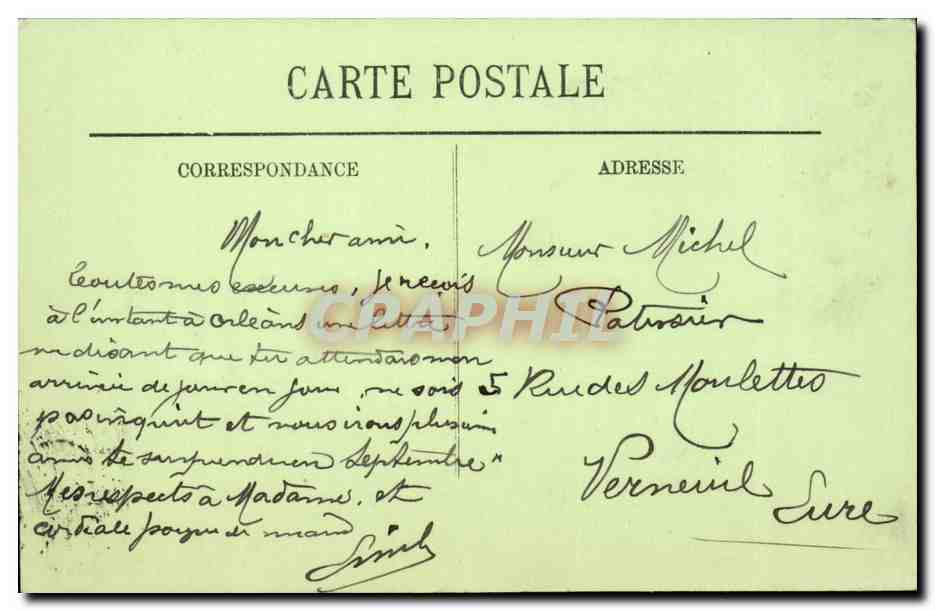 CARTE POSTALE
CORRESPONDANCE
Mon cher ami,
toutes mes excuses, je reçois
à l'instant à Orléans une lettre
me disant que tu attendais mon
arrivée de jour en jour, ne sois
pas inquiet et nous irons plusieurs
amis te surprendre en Septembre
Mes respects à Madame, et
cordiale poignée de main
ADRESSE
Monsieur Michel
Patissier
5 Rue des Moulettes
Verneuil
Eure
CPAPHIL